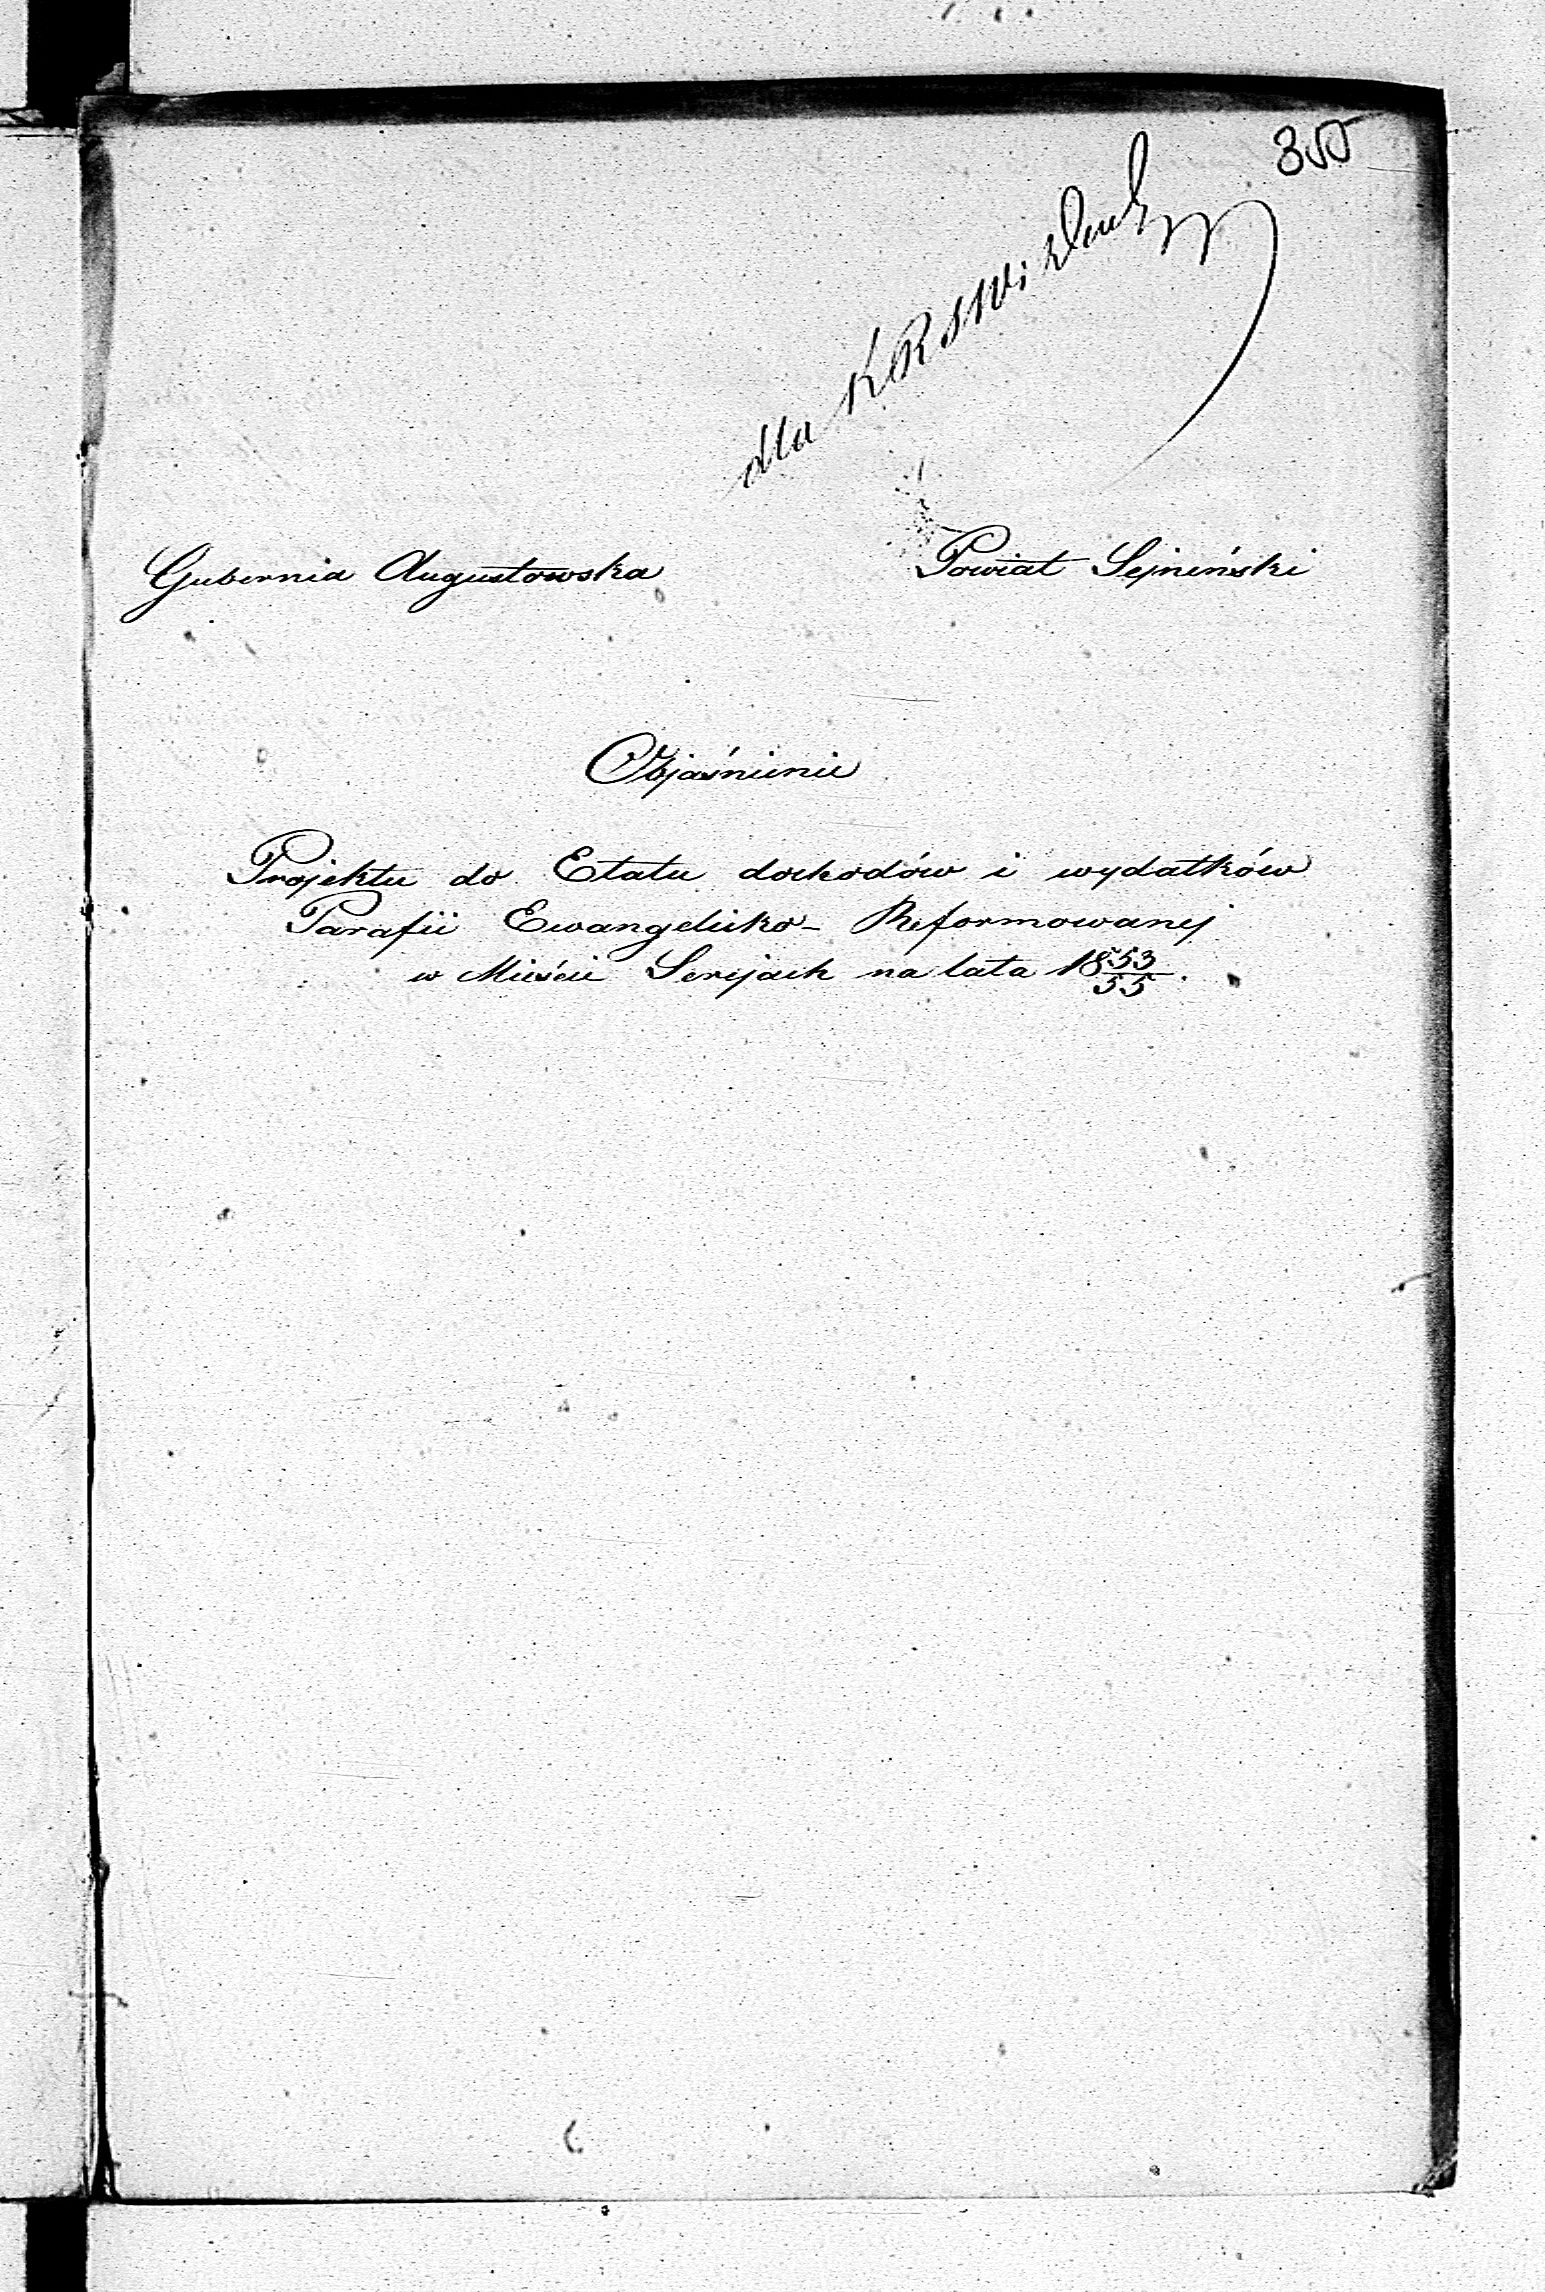 350
dla KRSW i Duch
Gubernia Augustowska
Powiat Sejneński
Objaśnienie
Projektu do Etatu dochodów i wydatków
Parafii Ewangelicko-Reformowanej
w Mieście Serejach na lata 1853/55.